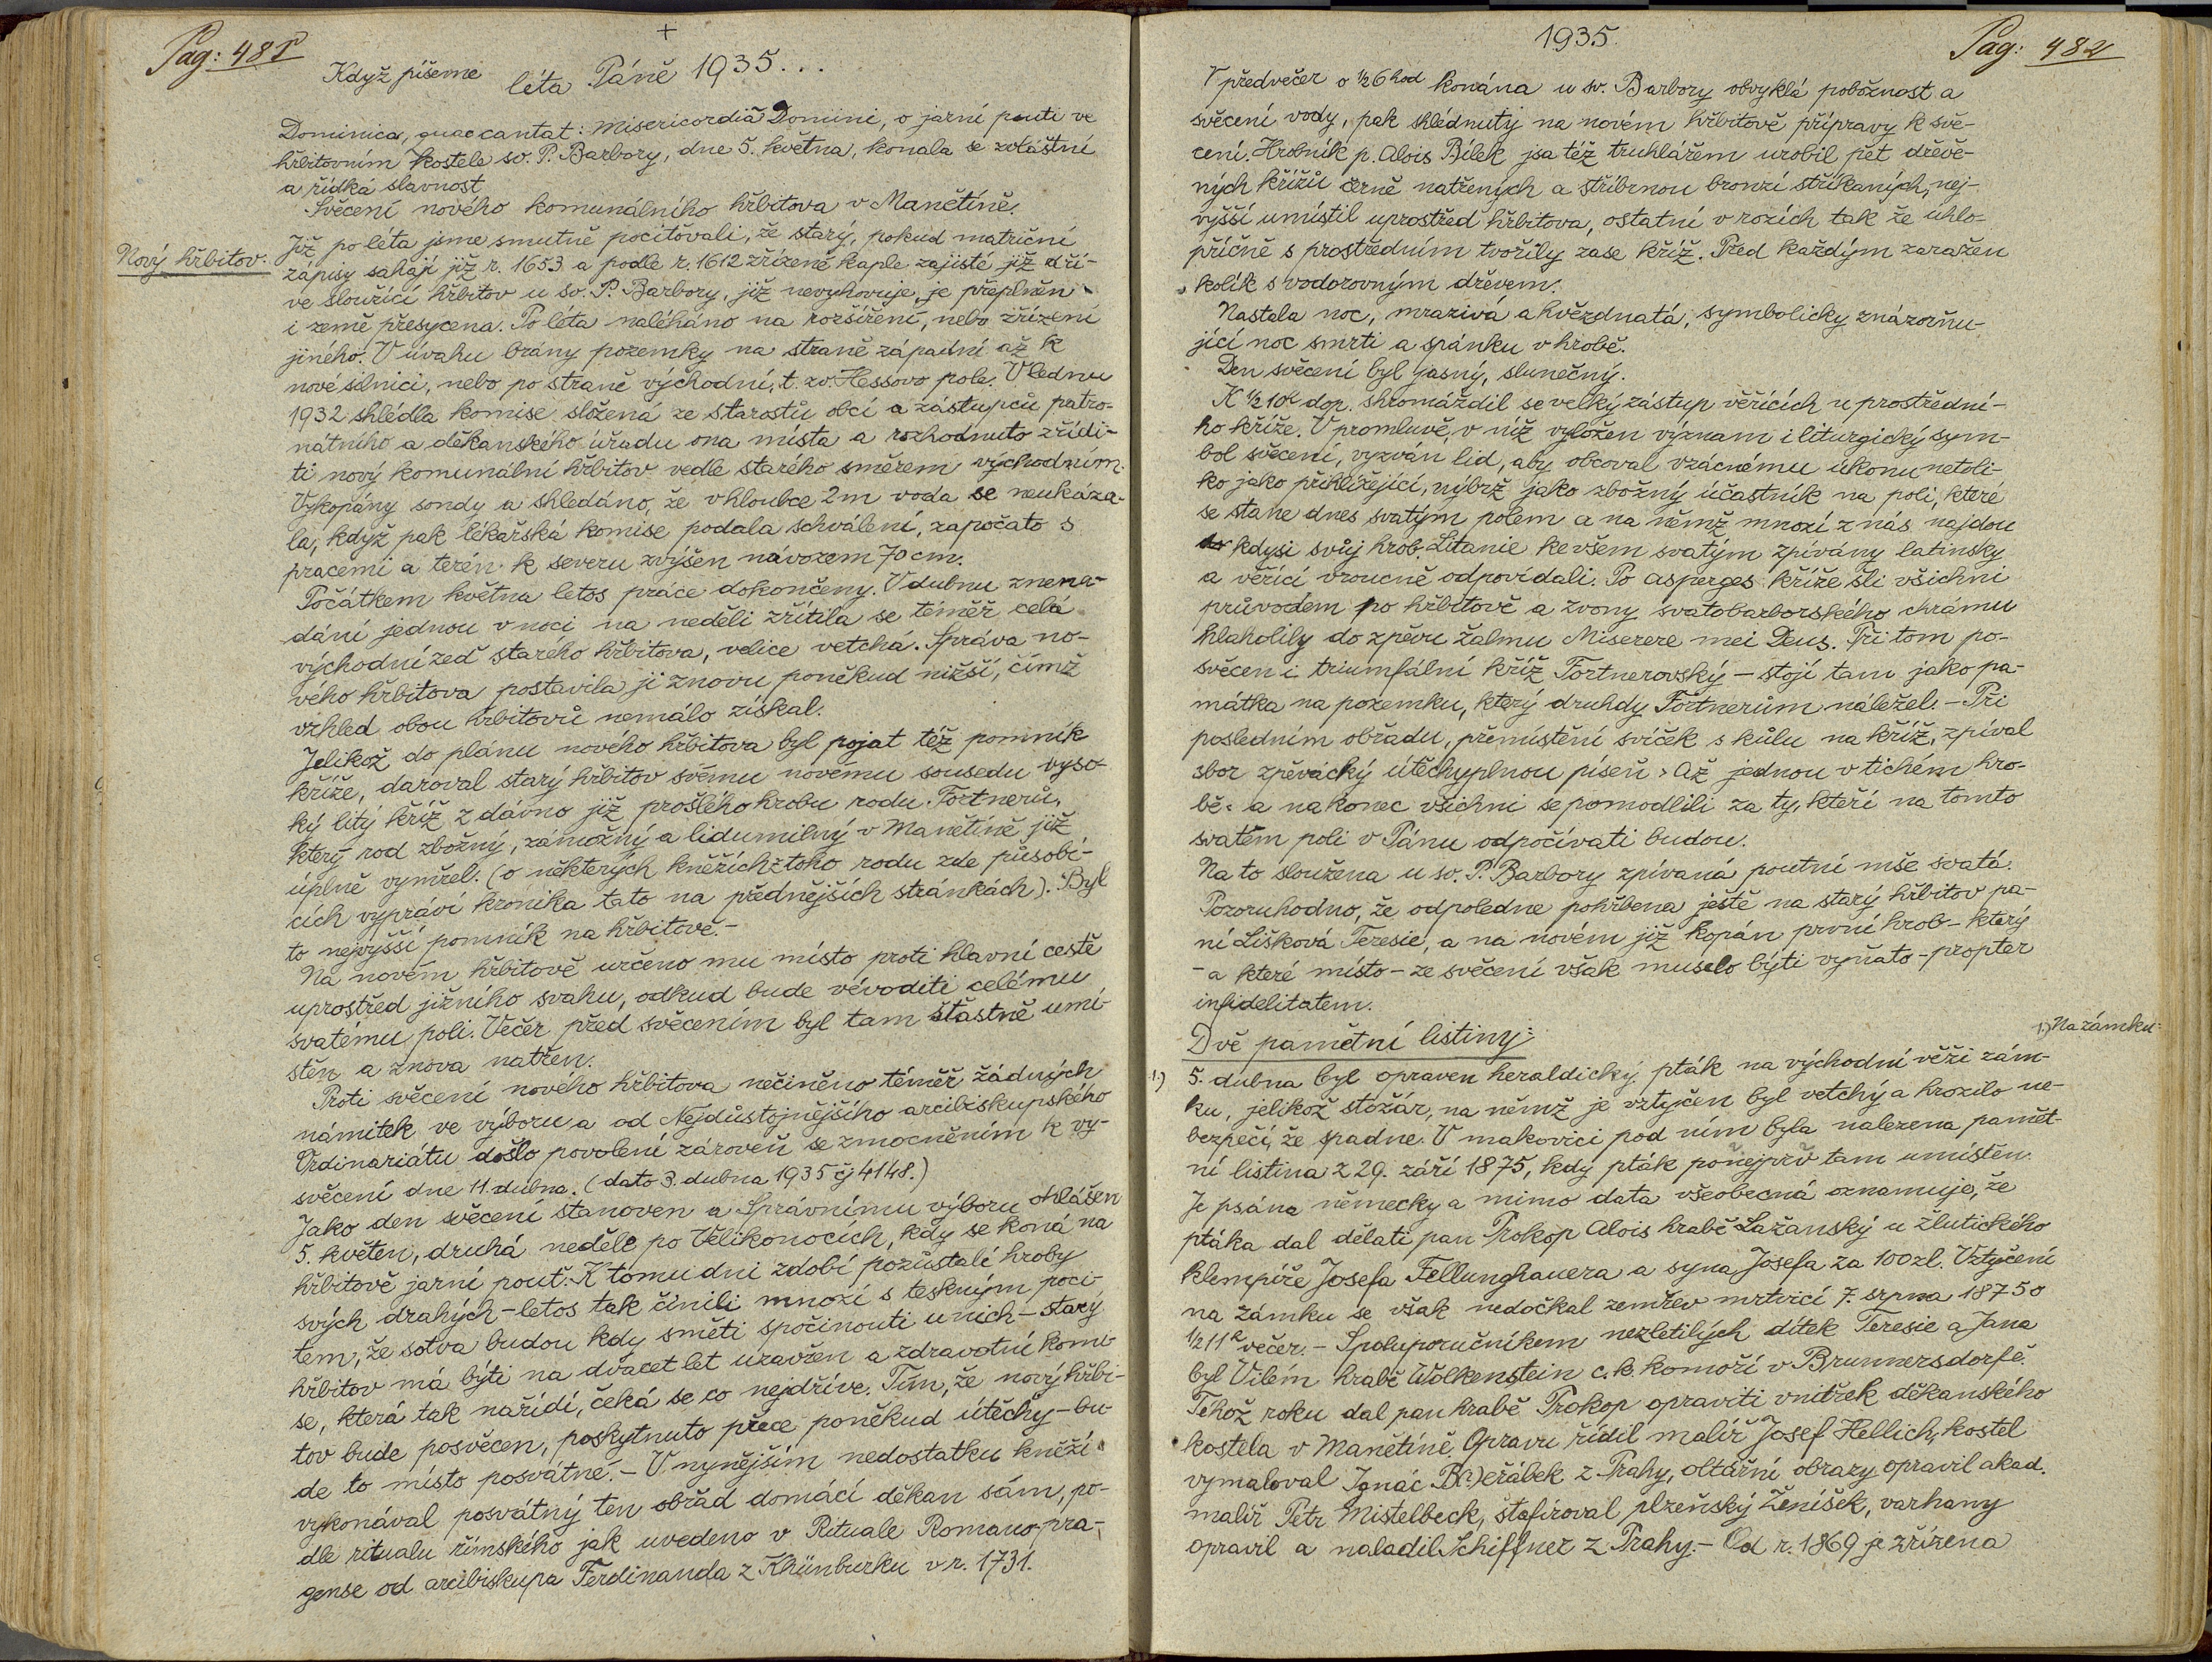 Pag: 481
+
Když píšeme léta Páně 1935...
Dominica, quae cantat: Misericordia Domini, o jarní pouti ve
hřbitovním kostele sv. P. Barbory, dne 5. května, konala se zvláštní
a řídká slavnost
Svěcení nového komunálního hřbitova v Manětíně.
Nový hřbitov:
Již po léta jsme smutně pociťovali, že starý, pokud matriční
zápisy sahají již r. 1653 a podle r. 1612 zřízené kaple zajisté již dří-
ve sloužící hřbitov u sv. P. Barbory, již nevyhovuje, je přeplněn
i země přesycena. Po léta naléháno na rozšíření, nebo zřízení
jiného. V úvahu brány pozemky na straně západní až k
nové silnici, nebo po straně východní, t. zv. Hessovo pole. V lednu
1932 shlédla komise složená ze starostů obcí a zástupců patro-
nátního a děkanského úřadu ona místa a rozhodnuto zřídi-
ti nový komunální hřbitov vedle starého směrem východním.
Vykopány sondy a shledáno, že v hloubce 2m voda se neukáza-
la, když pak lékařská komise podala schválení, započato s
pracemi a terén k severu zvýšen návozem 70 cm.
Počátkem května letos práce dokončeny. V dubnu znena-
dání jednou v noci na neděli zřítila se téměř celá
východní zeď starého hřbitova, velice vetchá. Správa no-
vého hřbitova postavila ji znovu poněkud nižší, čímž
vzhled obou hřbitovů nemálo získal.
Jelikož do plánu nového hřbitova byl pojat též pomník
kříže, daroval starý hřbitov svému novému sousedu vyso-
ký litý kříž z dávno již prošlého hrobu rodu Fortnerů,
který rod zbožný, zámožný a lidumilný v Manětíně již
úplně vymřel. (o některých kněžích z toho rodu zde působí-
cích vypráví kronika tato na přednějších stránkách). Byl
to nejvyšší pomník na hřbitově.-
Na novém hřbitově určeno mu místo proti hlavní cestě
uprostřed jižního svahu, odkud bude vévoditi celému
svatému poli. Večer před svěcením byl tam šťastně umí-
stěn a znova natřen.
Proti svěcení nového hřbitova nečiněno téměř žádných
námitek ve výboru a od Nejdůstojnějšího arcibiskupského
Ordinariátu došlo povolení zároveň se zmocněním k vy-
svěcení dne 11. dubna. (dato 3. dubna 1935 čj 4148.)
Jako den svěcení stanoven a Správnímu výboru ohlášen
5. květen, druhá neděle po Velikonocích, kdy se koná na
hřbitově jarní pouť. K tomu dni zdobí pozůstalí hroby
svých drahých - letos tak činili mnozí s teskným poci-
tem, že sotva budou kdy směti spočinouti u nich - starý
hřbitov má býti na dvacet let uzavřen a zdravotní komi-
se, která tak nařídí, čeká se co nejdříve. Tím, že nový hřbi-
tov bude posvěcen, poskytnuto přece poněkud útěchy - bu-
de to místo posvátné. - V nynějším nedostatku kněží
vykonával posvátný ten obřad domácí děkan sám, po-
dle rituálu římského jak uvedeno v Rituale Romano-pra-
gense od arcibiskupa Ferdinanda z Khünburku v r. 1731.
1935.
Pag: 482
V předvečer o ½6 hod konána u sv. Barbory obvyklá pobožnost a
svěcení vody, pak shlédnuty na novém hřbitově přípravy k svě-
cení. Hrobník p. Alois Bílek jsa též truhlářem urobil pět dřevě-
ných křížů černě natřených a stříbrnou bronzí stříkaných, nej-
vyšší umístil uprostřed hřbitova, ostatní v rozích tak že uhlo-
příčně s prostředním tvořily zase kříž. Před každým zaražen
kolík s vodorovným dřevem.
Nastala noc, mrazivá a hvězdnatá, symbolicky znázorňu-
jící noc smrti a spánku v hrobě.
Den svěcení byl jasný, slunečný.
K ½10h dop. shromáždil se velký zástup věřících u prostřední-
ho kříže. V promluvě, v níž vyložen význam i liturgický sym-
bol svěcení, vyzván lid, aby obcoval vzácnému úkonu netoli-
ko jako přihlížející, nýbrž jako zbožný účastník na poli, které
se stane dnes svatým polem a na němž mnozí z nás najdou
kdysi svůj hrob. Litanie ke všem svatým zpívány latinsky
a věřící vroucně odpovídali. Po asperges kříže šli všichni
průvodem po hřbitově a zvony svatobarborského chrámu
hlaholily do zpěvu žalmu Miserere mei Deus. Při tom po-
svěcen i triumfální kříž Fortnerovský - stojí tam jako pa-
mátka na pozemku, který druhdy Fortnerům náležel. - Při
posledním obřadu, přemístění svíček s kůlu na kříž, zpíval
sbor zpěvácký útěchyplnou píseň » Až jednou v tichém hro-
bě« a nakonec všichni se pomodlili za ty, kteří na tomto
svatém poli v Pánu odpočívati budou.
Na to sloužena u sv. P. Barbory zpívaná poutní mše svatá.
Pozoruhodno, že odpoledne pohřbena ještě na starý hřbitov pa-
ní Lišková Teresie, a na novém již kopán první hrob - který
- a které místo - ze svěcení však muselo býti vyňato - propter
infidelitatem.
Dvě pamětní listiny:
1.) Na zámku:
1.) 5. dubna byl opraven heraldický pták na východní věži zám-
ku, jelikož stožár, na němž je vztyčen byl vetchý a hrozilo ne-
bezpečí, že spadne. V makovici pod ním byla nalezena pamět-
ní listina z 29. září 1875, kdy pták ponejprv tam umístěn.
Je psána německy a mimo data všeobecná oznamuje, že
ptáka dal dělati pan Prokop Alois hrabě Lažanský u žlutického
klempíře Josefa Fellunghauera a syna Josefa za 100zl. Vztyčení
na zámku se však nedočkal zemřev mrtvicí 7. srpna 1875 o
½11h večer. - Spoluporučníkem nezletilých dítek Teresie a Jana
byl Vilém hrabě Wolkenstein c. k. komoří v Brunnersdorfě.
Téhož roku dal pan hrabě Prokop opraviti vnitřek děkanského
kostela v Manětíně. Opravu řídil malíř Josef Hellich, kostel
vymaloval Ignác B(?)eřábek z Prahy, oltářní obrazy opravil akad.
malíř Petr Mistelbeck, štafíroval plzeňský Ženíšek, varhany
opravil a naladil Schiffner z Prahy. - Od r. 1869 je zřízena